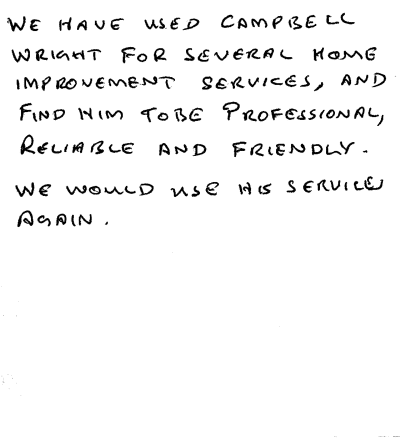 WE HAVE USED CAMPBELL
WRIGHT FOR SEVERAL HOME
IMPROVEMENT SERVICES, AND
FIND HIM TO BE PROFESSIONAL,
RELIABLE AND FRIENDLY.
WE WOULD USE HIS SERVICES
AGAIN.